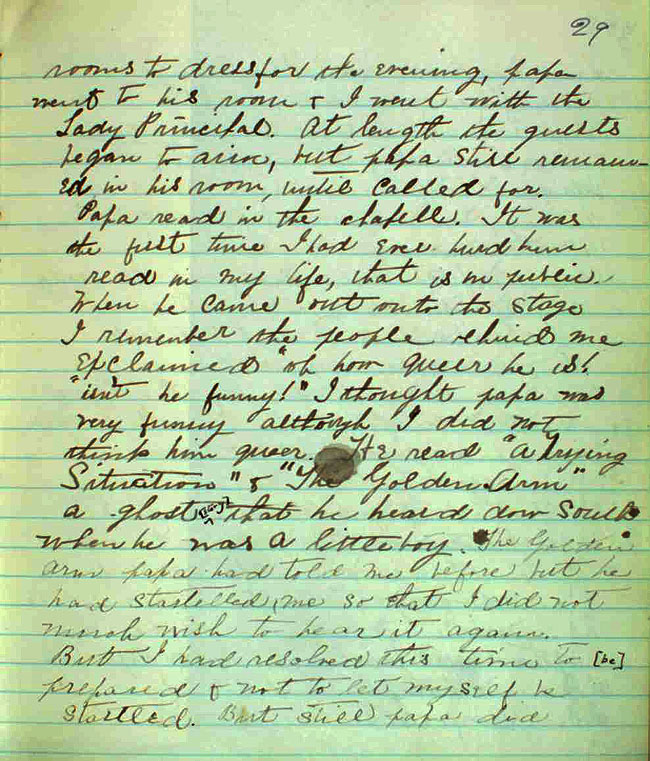 29
rooms to dress for the evening, papa
went to his room & I went with the
Lady Principal. At length the guests
began to arive, but papa still remain-
ed in his room, until called for.
Papa read in the chapell. It was
the first time I had ever hurd him
read in my life, that is in public.
When he came out onto the stage
I remember the people behind me
exclaimed "oh how queer he is!
"isn't he funny!" I thought papa was
very funny although I did not
think him queer. He read "A Trying
Situation" & "The Golden Arm"
a ghost that he heard down South
when he was a little boy. The Golden
Arm papa had told me before but he
had startelled me so that I did not
much wish to hear it again.
But I had resolved this time to [be]
prepared & not to let myself be
startled. But still papa did